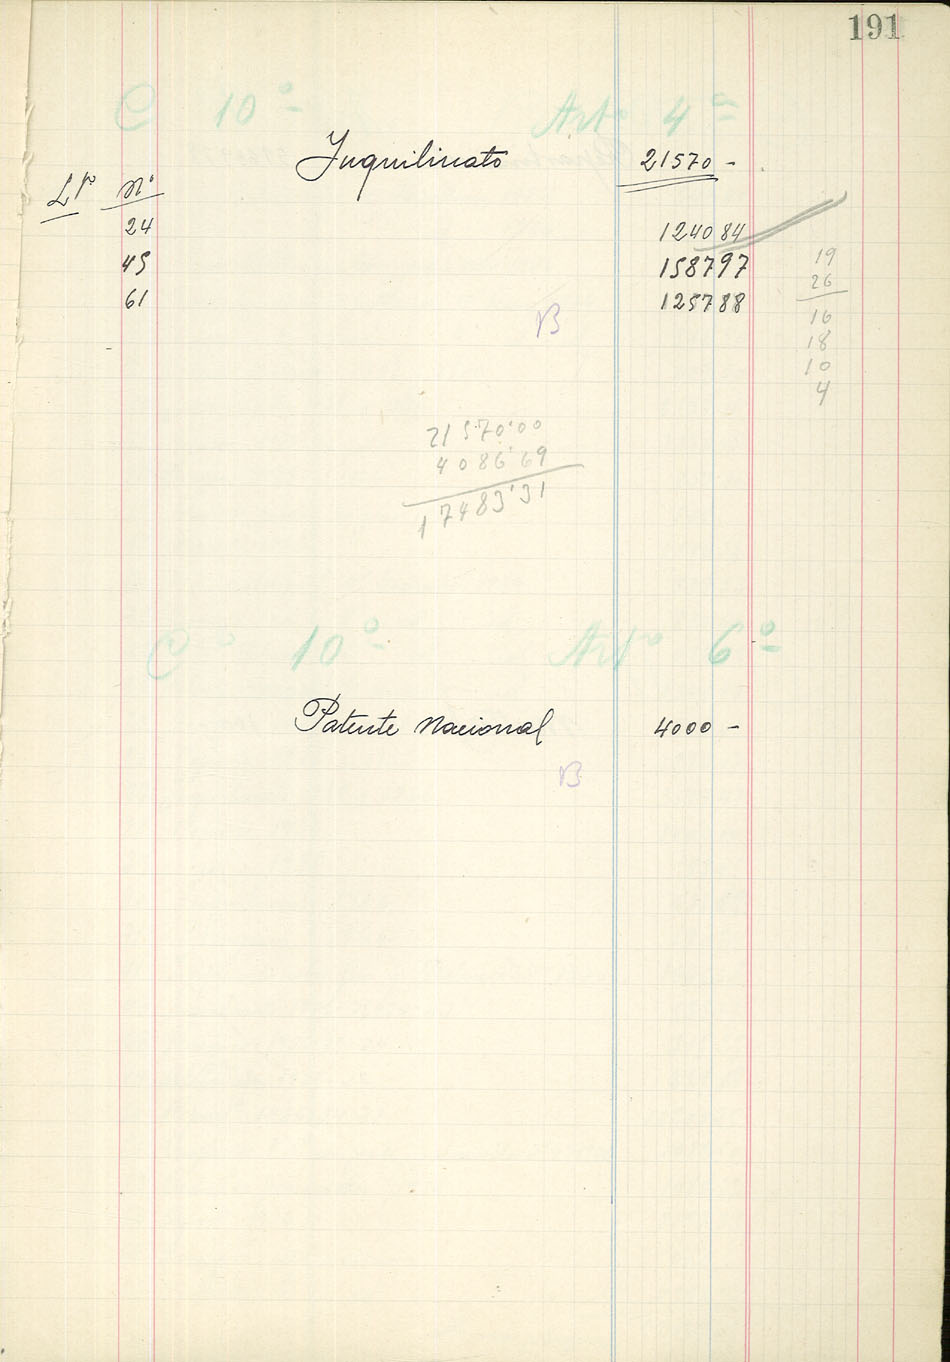 191
C 10º Artº 4º
Inquilinato 21570 -
Lº Nº
24 1240 84
45 1587 97
61 1257 88
19
26
16
18
10
4
B
21570'00
4086'69
17483'31
Cº 10º Artº 6º
Patente Nacional 4000 -
B